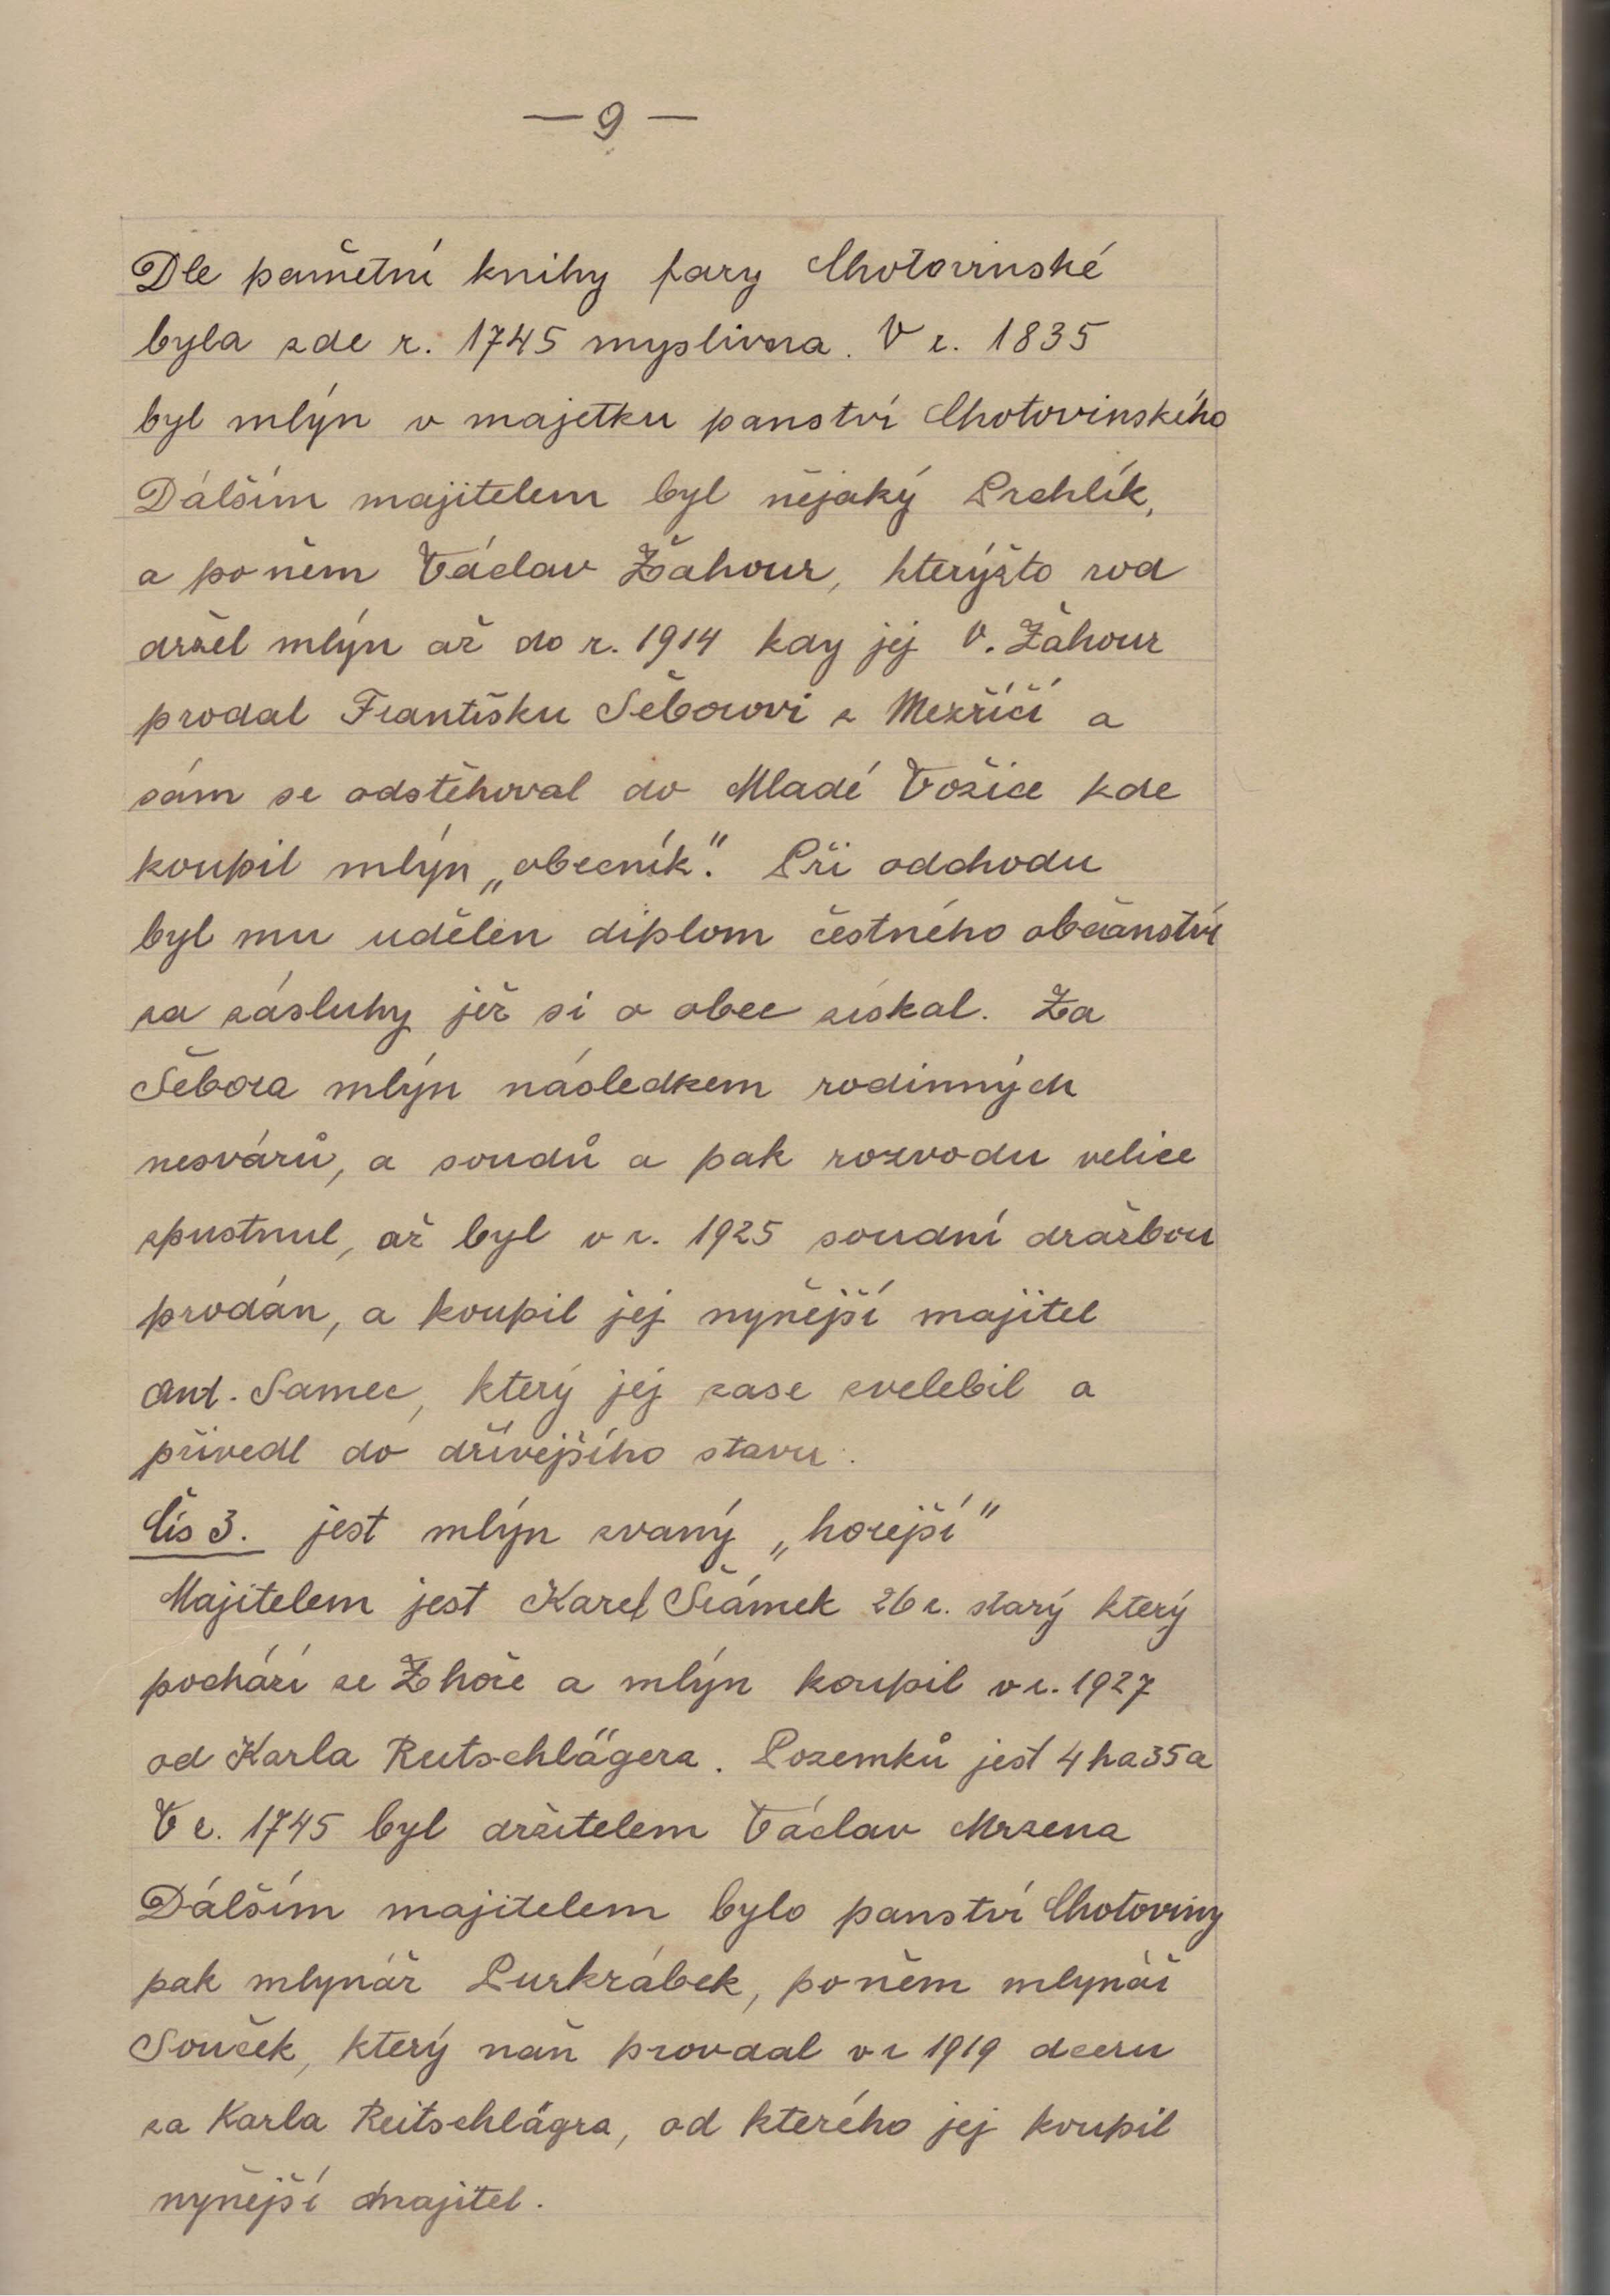 — 9 —
Dle pamětní knihy fary Chotovinské
byla zde r. 1745 myslivna. V r. 1835
byl mlýn v majetku panství Chotovinského
Dálším majitelem byl nějaký Prchlík,
a poněm Václav Žahour, kterýžto rod
držel mlýn až do r. 1914 kdy jej V. Žahour
prodal Františku Šeborovi z Meziříčí a
sám se odstěhoval do Mladé Vožice kde
koupil mlýn „obecník". Při odchodu
byl mu udělen diplom čestného občanství
za zásluhy jež si o obec získal. Za
Šebora mlýn následkem rodinných
nesvárů, a soudů a pak rozvodu velice
zpustnul, až byl v r. 1925 soudní dražbou
prodán, a koupil jej nynější majitel
Ant. Samec, který jej zase zvelebil a
přivedl do dřívejšího stavu.
Čís 3. jest mlýn zvaný „hořejší"
Majitelem jest Karel Šrámek 26 r. starý který
pochází ze Zhoře a mlýn koupil v r. 1927
od Karla Rutschlägera. Pozemků jest 4 ha 35 a
V r. 1745 byl držitelem Václav Mrzena
Dálším majitelem bylo panství Chotoviny
pak mlynář Purkrábek, poněm mlynář
Souček, který naň provdal v r 1919 dceru
za Karla Reitschlágra, od kterého jej koupil
nynější majitel.